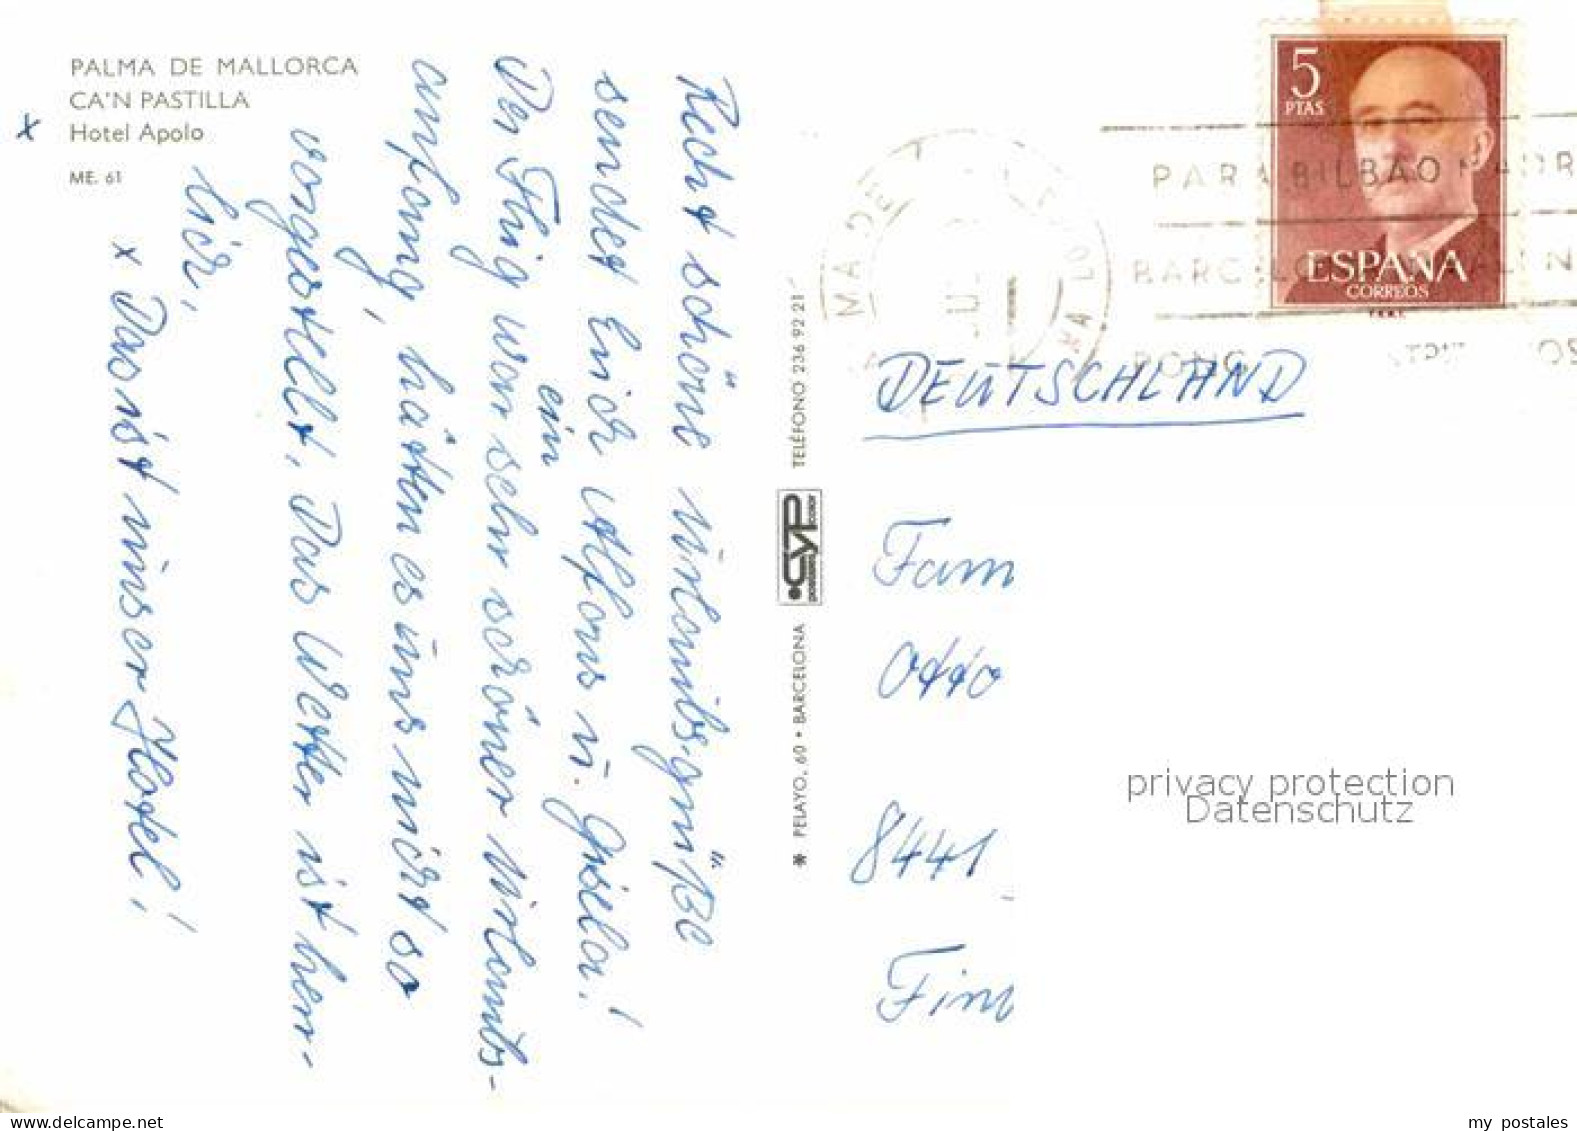 PALMA DE MALLORCA
CA'N PASTILLA
Hotel Apolo
ME. 61
x
Recht schöne Urlaubsgrüße
sendet Euch Alfons u. Gisela!
Der Flug war sehr schöner Urlaubs-
ein
anfang, hätten es uns nicht so
vorgestellt. Das Wetter ist herr-
lich,
x Das ist unser Hotel!
* PELAYO, 60 • BARCELONA
CYP
TELÉFONO 236 92 21
5
PTAS
ESPAÑA
CORREOS
F.N.M.T.
PARA BILBAO MADR
BARCELO
DEUTSCHLAND
Fam
Otto
8441
privacy protection
Datenschutz
my postales